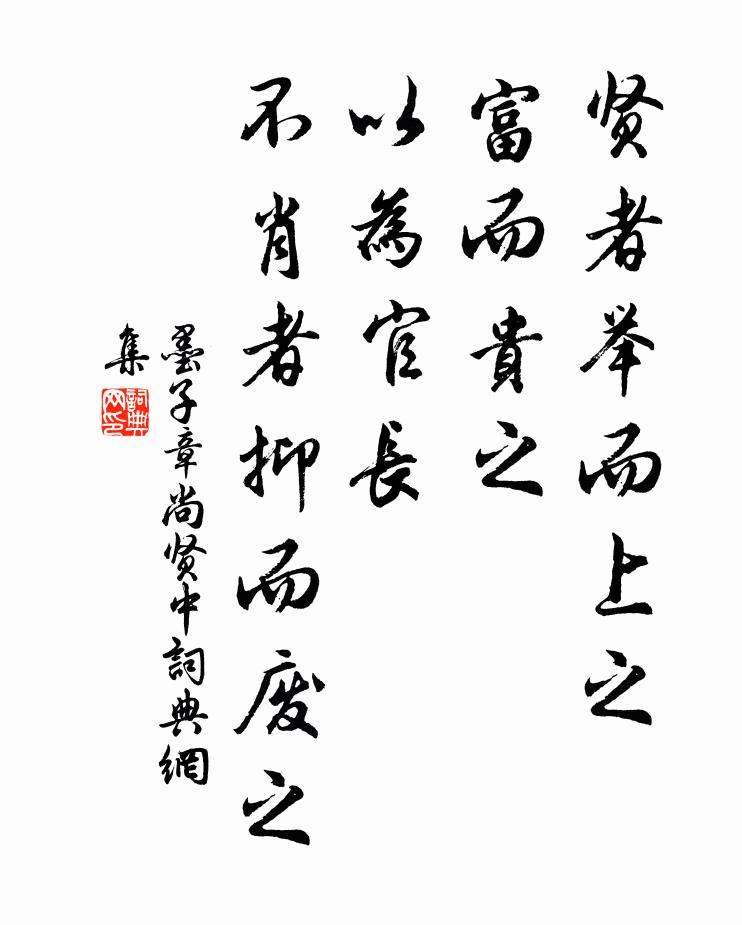 贤者举而上之
富而貴之
以為官長
不肖者抑而废之
墨子章尚贤中詞典網
集
詞典
网印